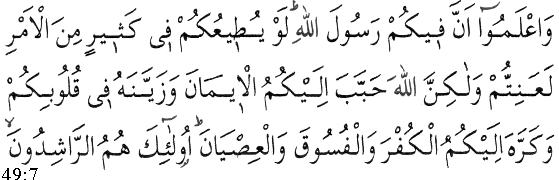 وَاعْلَمُوْٓا اَنَّ فِيْكُمْ رَسُوْلَ اللّٰهِ ؕ لَوْ يُطِيْعُكُمْ فِيْ كَثِيْرٍ مِّنَ الْاَمْرِ
لَعَنِتُّمْ وَلٰكِنَّ اللّٰهَ حَبَّبَ اِلَيْكُمُ الْاِيْمَانَ وَزَيَّنَهٗ فِيْ قُلُوْبِكُمْ
وَكَرَّهَ اِلَيْكُمُ الْكُفْرَ وَالْفُسُوْقَ وَالْعِصْيَانَ ؕ اُولٰٓئِكَ هُمُ الرَّاشِدُوْنَ ۙ
49:7